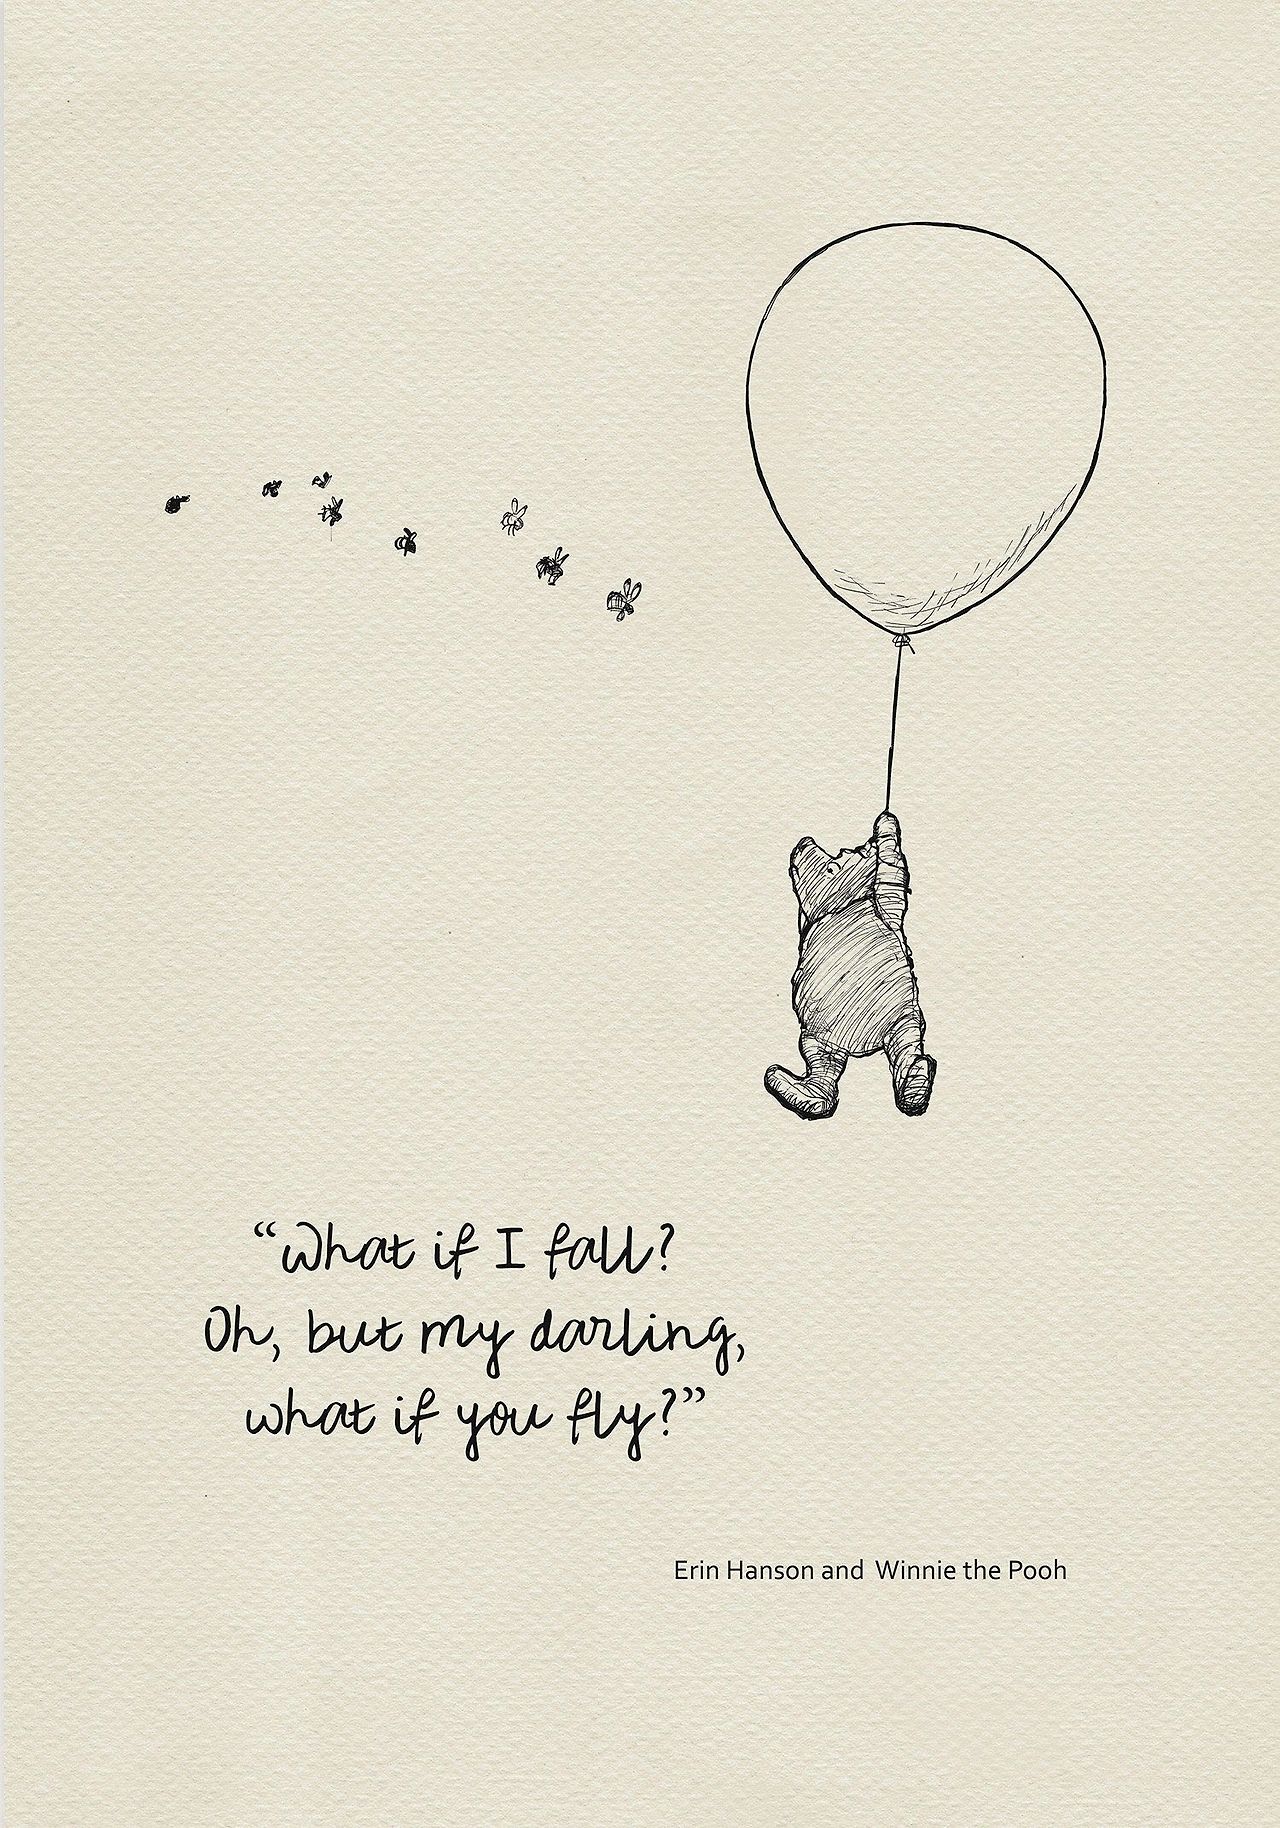 “What if I fall?
Oh, but my darling,
what if you fly?”
Erin Hanson and Winnie the Pooh